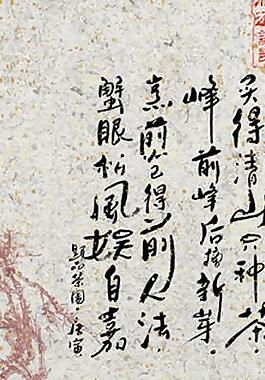 买得清山只种茶.
峰前峰后摘新芽.
烹煎已得前人法,
蟹眼松風娱自嘉
题品茶圖·庚寅